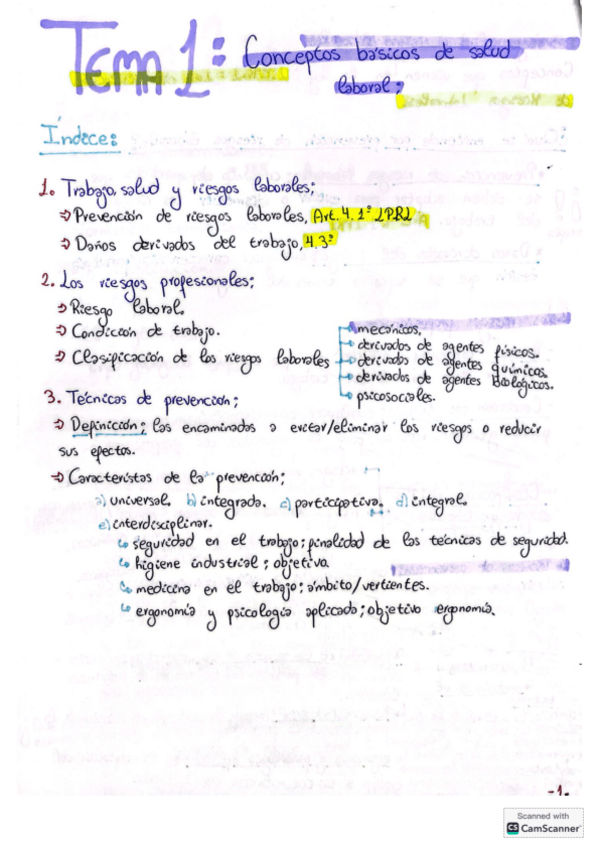 TEMA 1: Conceptos básicos de salud
laboral;
Índice:
1. Trabajo, salud y riesgos laborales;
⇒ Prevención de riesgos laborales, Art. 4. 1º LPRL
⇒ Daños derivados del trabajo, 4.3º
2. Los riesgos profesionales;
⇒ Riesgo laboral.
⇒ Condición de trabajo.
⇒ Clasificación de los riesgos laborales
mecánicos.
derivados de agentes físicos.
derivados de agentes químicos.
derivados de agentes biológicos.
psicosociales.
3. Técnicas de prevención;
⇒ Definición; las encaminadas a evitar/eliminar los riesgos o reducir
sus efectos.
⇒ Caracteristas de la prevención;
a) universal. b) integrada. c) participativa. d) integral.
e) interdisciplinar.
↳ seguridad en el trabajo; finalidad de las técnicas de seguridad.
↳ higiene industrial; objetivo.
↳ medicina en el trabajo; ámbito/vertientes.
↳ ergonomía y psicología aplicada; objetivo ergonomía.
-1.
Scanned with
CS CamScanner